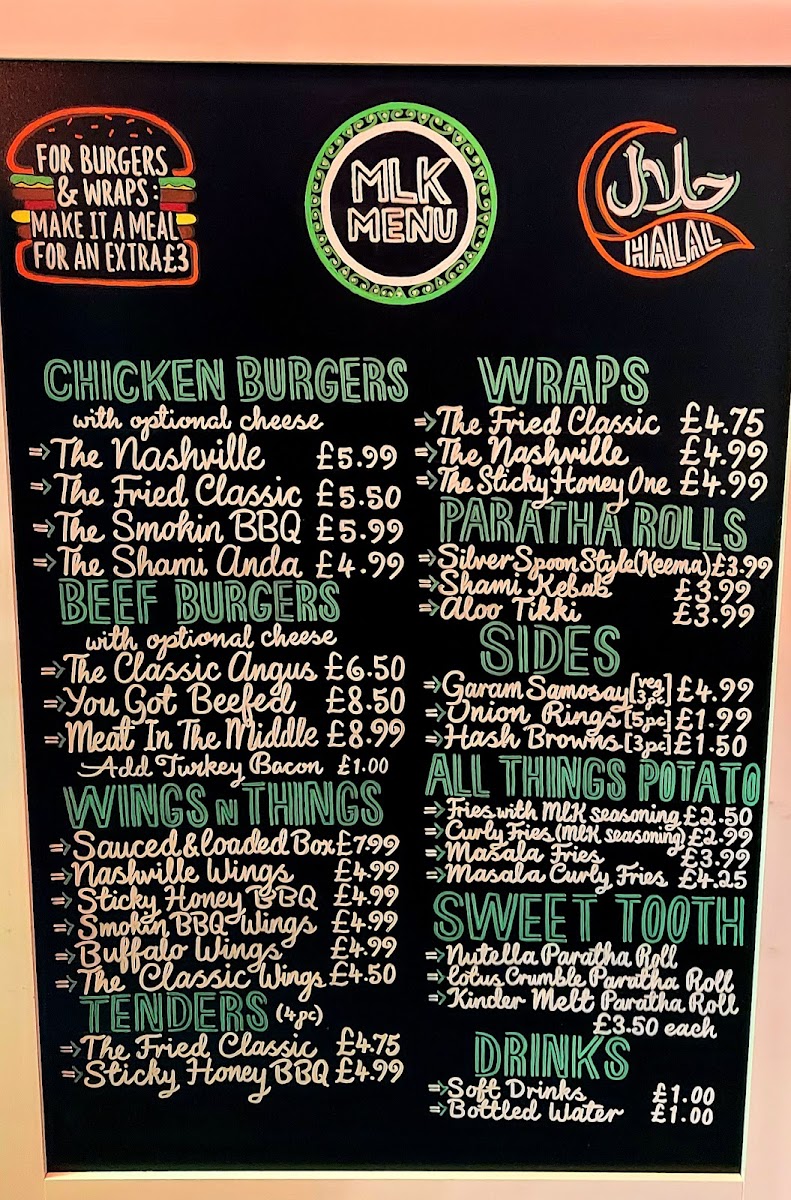 FOR BURGERS
& WRAPS:
MAKE IT A MEAL
FOR AN EXTRA £3
MLK
MENU
حلال
HALAL
CHICKEN BURGERS
with optional cheese
⇒The Nashville £5.99
⇒The Fried Classic £5.50
⇒The Smokin BBQ £5.99
⇒The Shami Anda £4.99
BEEF BURGERS
with optional cheese
⇒The Classic Angus £6.50
⇒You Got Beefed £8.50
⇒Meat In The Middle £8.99
Add Turkey Bacon £1.00
WINGS N THINGS
⇒Sauced & loaded Box £7.99
⇒Nashville Wings £4.99
⇒Sticky Honey BBQ £4.99
⇒Smokin BBQ Wings £4.99
⇒Buffalo Wings £4.99
⇒The Classic Wings £4.50
TENDERS (4pc)
⇒The Fried Classic £4.75
⇒Sticky Honey BBQ £4.99
WRAPS
⇒The Fried Classic £4.75
⇒The Nashville £4.99
⇒The Sticky Honey One £4.99
PARATHA ROLLS
⇒Silver Spoon Style (Keema) £3.99
⇒Shami Kebab £3.99
⇒Aloo Tikki £3.99
SIDES
⇒Garam Samosay [veg 3pc] £4.99
⇒Union Rings [5pc] £1.99
⇒Hash Browns [3pc] £1.50
ALL THINGS POTATO
⇒Fries with MLK seasoning £2.50
⇒Curly Fries (MLK seasoning) £2.99
⇒Masala Fries £3.99
⇒Masala Curly Fries £4.25
SWEET TOOTH
⇒Nutella Paratha Roll
⇒Lotus Crumble Paratha Roll
⇒Kinder Melt Paratha Roll
£3.50 each
DRINKS
⇒Soft Drinks £1.00
⇒Bottled Water £1.00